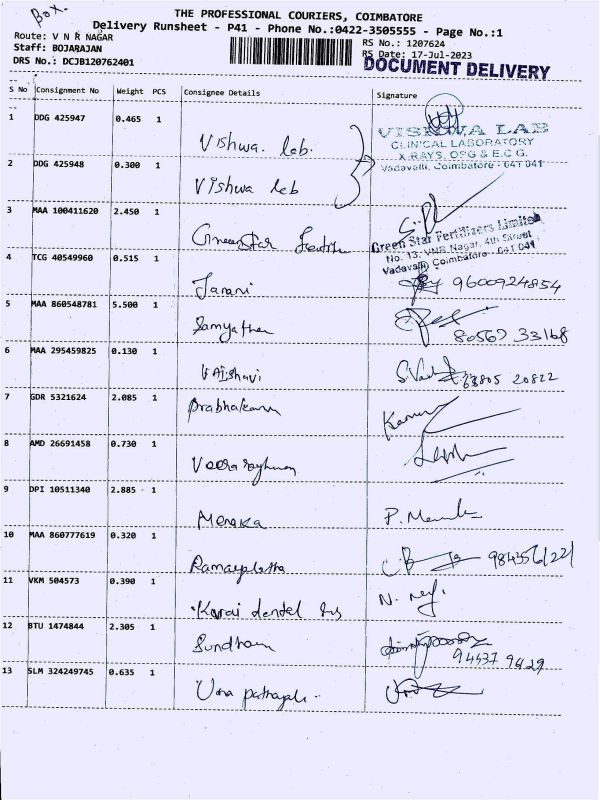 Box.
THE PROFESSIONAL COURIERS, COIMBATORE
Delivery Runsheet - P41 - Phone No.:0422-3505555 - Page No.:1
Route: V N R NAGAR RS No.: 1207624
Staff: BOJARAJAN RS Date: 17-Jul-2023
DRS No.: DCJB120762401 DOCUMENT DELIVERY
S No Consignment No Weight PCS Consignee Details Signature
1 DDG 425947 0.465 1 Vishwa. Lab.
VISHWA LAB
CLINICAL LABORATORY
X.RAYS, OPG & E.C.G.
Vadavalli, Coimbatore - 641 041
2 DDG 425948 0.300 1 Vishwa Lab
3 MAA 100411620 2.450 1 Greenstar
Green Star Fertilizers Limited
No. 13, VNR Nagar, 4th Street
Vadavalli, Coimbatore - 641 041
4 TCG 40549960 0.515 1 Janani 9600924854
5 MAA 860548781 5.500 1 80567 33168
6 MAA 295459825 0.130 1 63805 20822
7 GDR 5321624 2.085 1 Prabhakaran
8 AMD 26691458 0.730 1 Veeraraghavan
9 DPI 10511340 2.885 1 Menaka
10 MAA 860777619 0.320 1
11 VKM 504573 0.390 1 dental
12 BTU 1474844 2.305 1 94437 94129
13 SLM 324249745 0.635 1 Uma